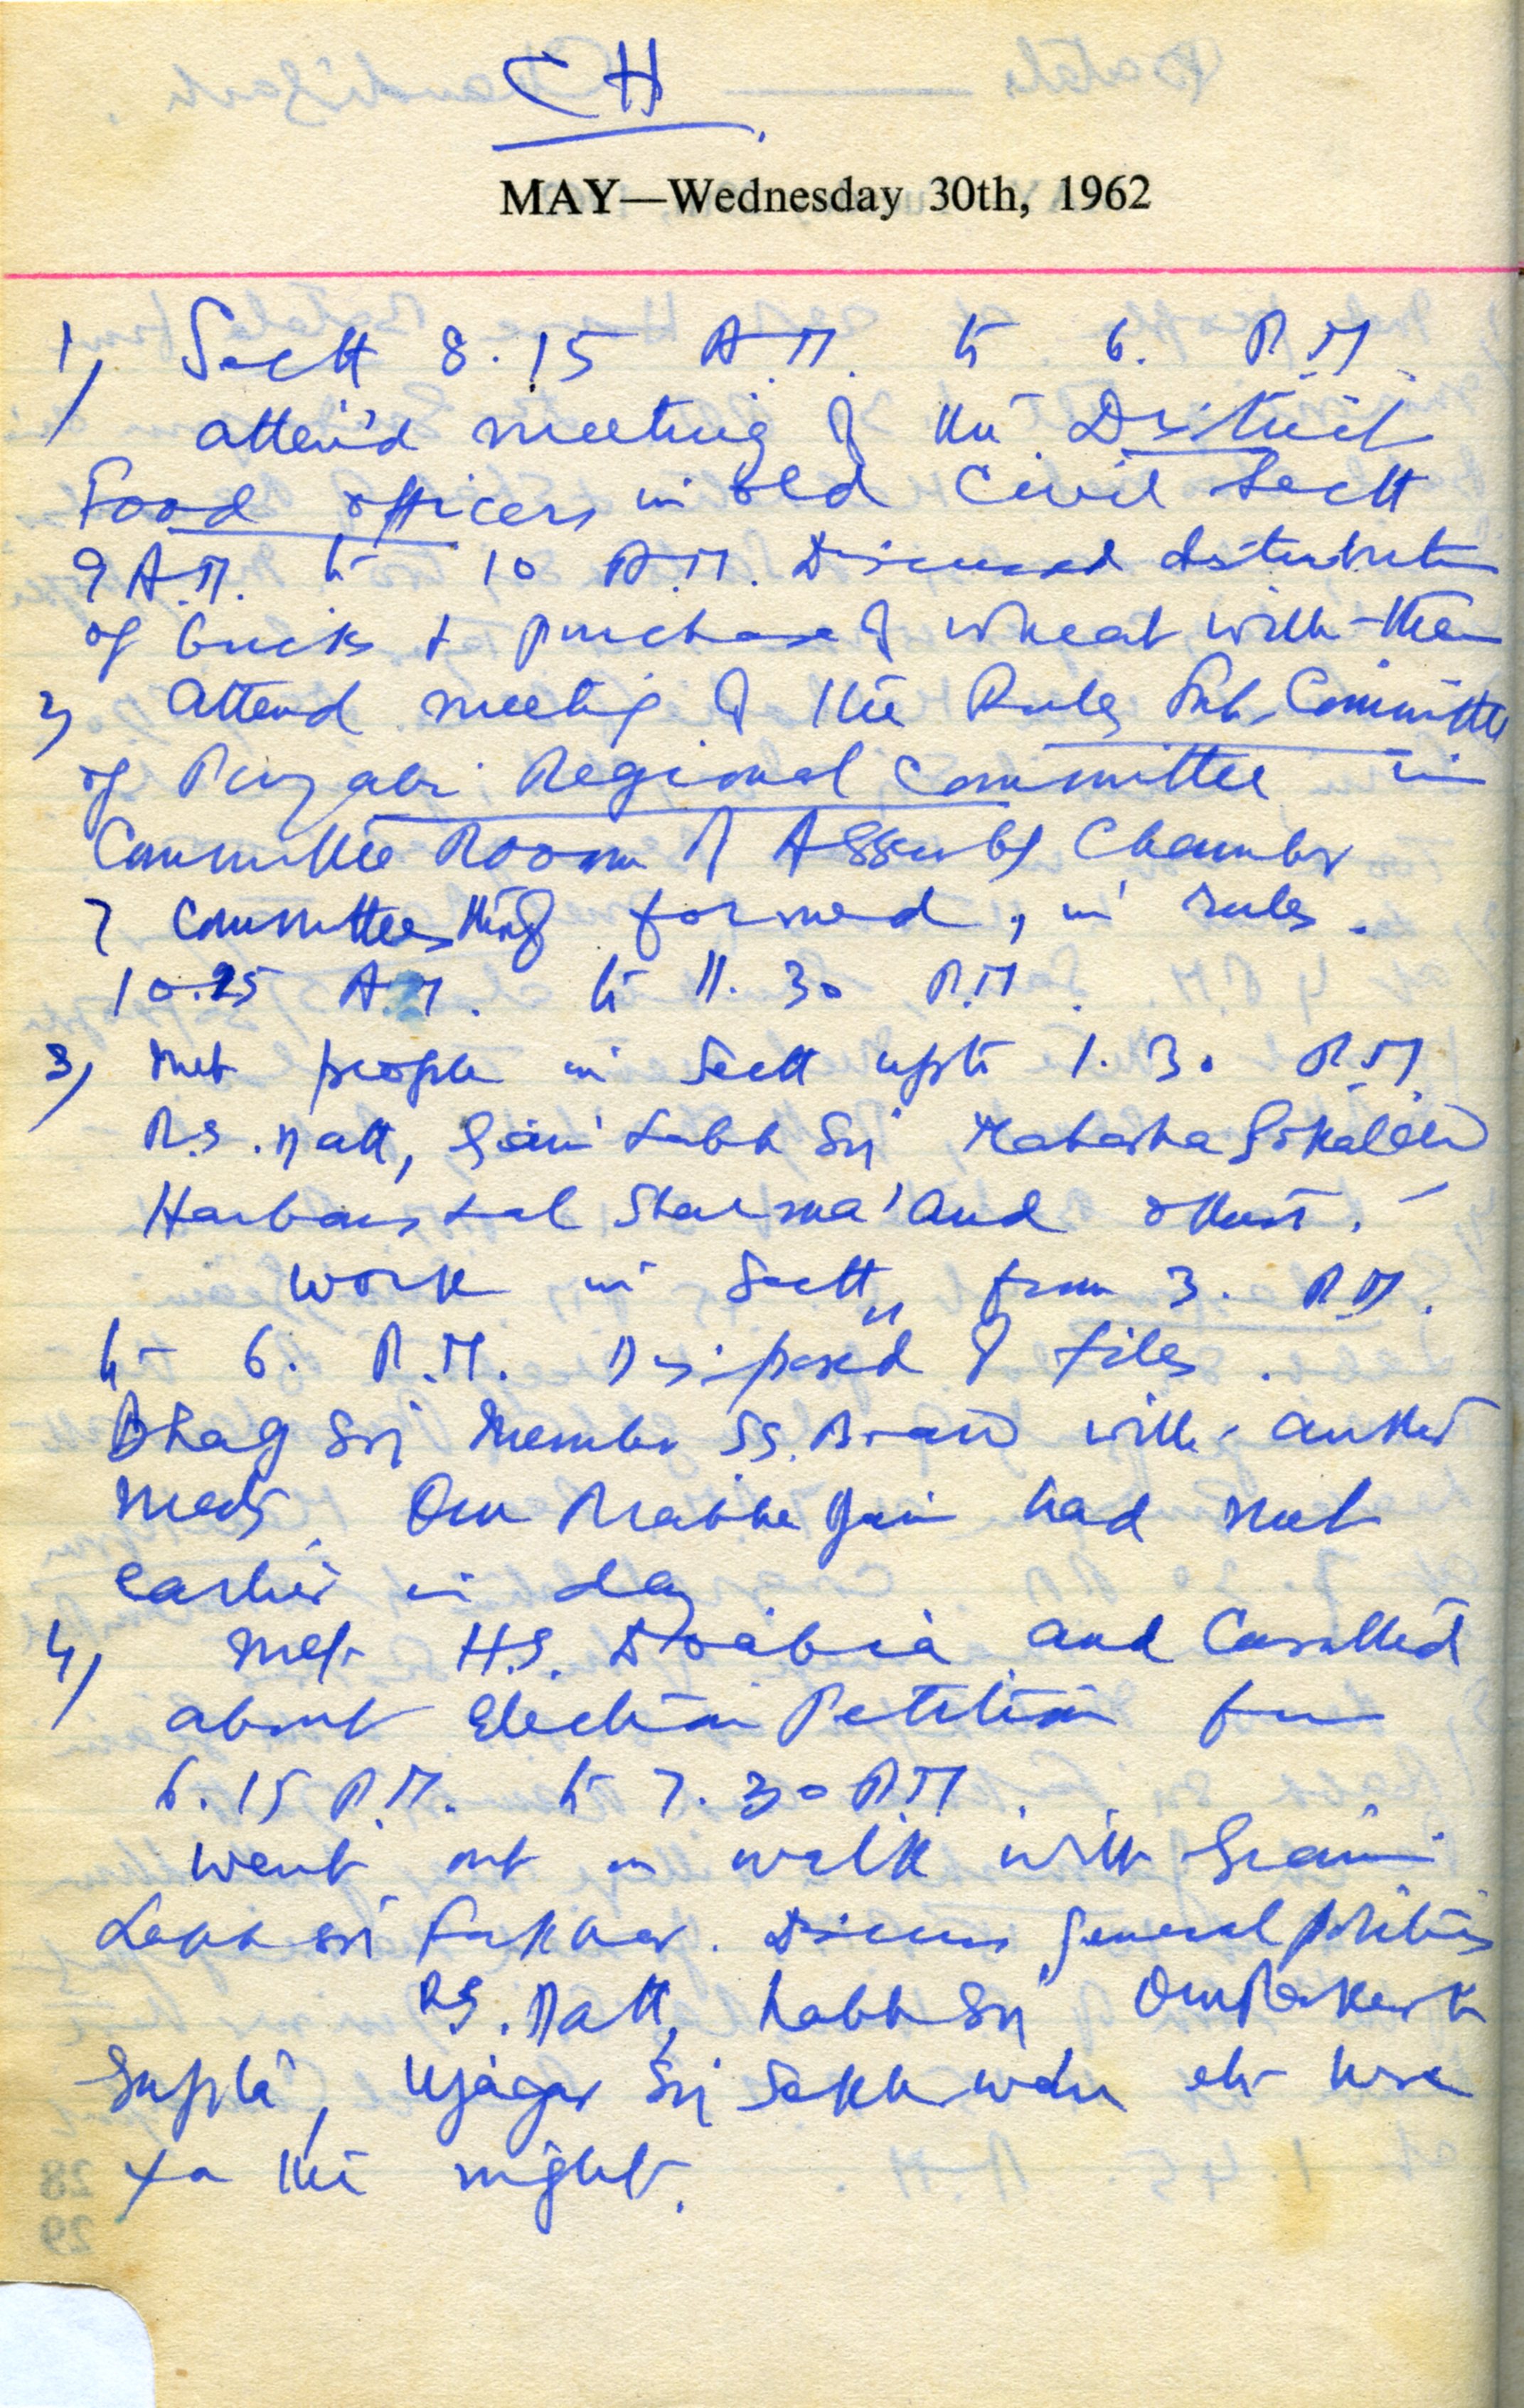 CH
MAY—Wednesday 30th, 1962
1) Sectt 8.15 A.M. to 6. P.M.
attend meeting of the District
Food officers in old Civil Sectt
9 A.M. to 10 A.M. Discussed distribution
of bricks & purchase of wheat with them
2) attend meeting of the Rules Sub-Committee
of Punjabi Regional Committee in
Committee Room of Assembly Chamber
7 Committees formed, in rules.
10.25 A.M. to 11.30 P.M.
3) Met people in Sectt upto 1.30 P.M.
R.S. Natt, Giani Labh Sri Mahasha Gokal
Harbans Lal Sharma and others.
work in Sectt from 3. P.M.
to 6. P.M. Disposed of files.
Bhag Sri Member S.S. Board with another
meets. Om Prabha Jain had met
earlier in day
4) Met H.S. Doabia and Consulted
about Election Petition from
6.15 P.M. to 7.30 P.M.
went out on walk with Giani
Labh Sri Fakhar. Discuss general politics
R.S. Natt, Labh Sri Om Parkash
Gupta, Ujagar Sri etc here
for the night.
28
29